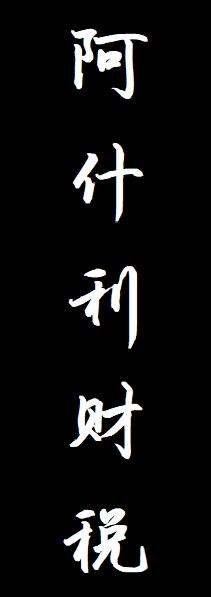 阿什利财税